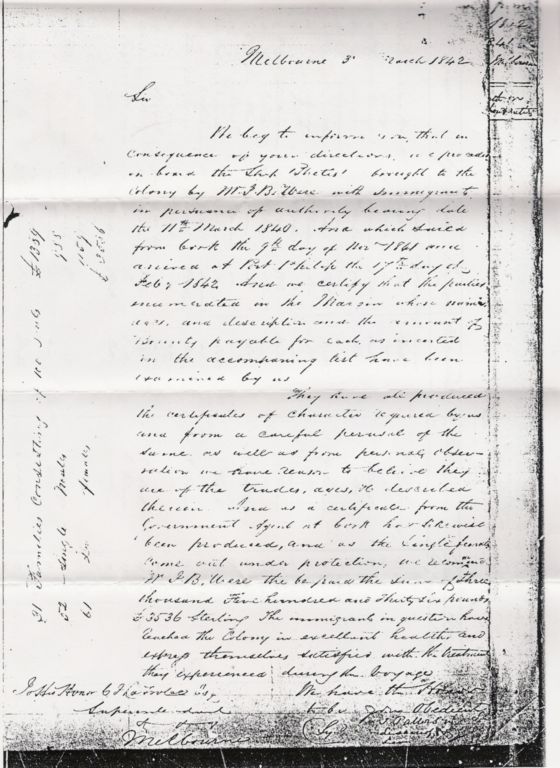 Melbourne 3 March 1842
Sir
We beg to inform you, that in
consequence of your directions, we proceeded
on board the Ship "Thetis" brought to the
Colony by Mr J. B. Were with Immigrants
in pursuance of authority bearing date
the 11th March 1840. And which sailed
from Cork the 9th day of Novr 1841 and
arrived at Port Philip the 17th day of
Feby 1842 And we certify that the parties
enumerated in the Margin whose names
ages, and description and the amount of
Bounty payable for each, as inserted
in the accompaning list have been
examined by us
They have all produced
the certificates of character required by us
and from a careful perusal of the
same as well as from personal obser-
vation we have reason to believe they
are of the trades, ages, &c described
therein. And as a certificate from the
Government Agent at Cork has likewise
been produced, and as the Single females
came out under protection, we recommend
Mr J. B. Were be paid the sum of Three
thousand Five hundred and Thirty six pounds
£3536 Sterling The immigrants in question have
reached the Colony in excellent health and
express themselves satisfied with the treatment
they experienced during the Voyage
We have the Honor
to be your Obedient
To His Honor C J La Trobe Esq
Superintendent
Melbourne
(Sg) Patterson
31 Families Consisting of £1339
52 Single Males
61 Do females
£3536